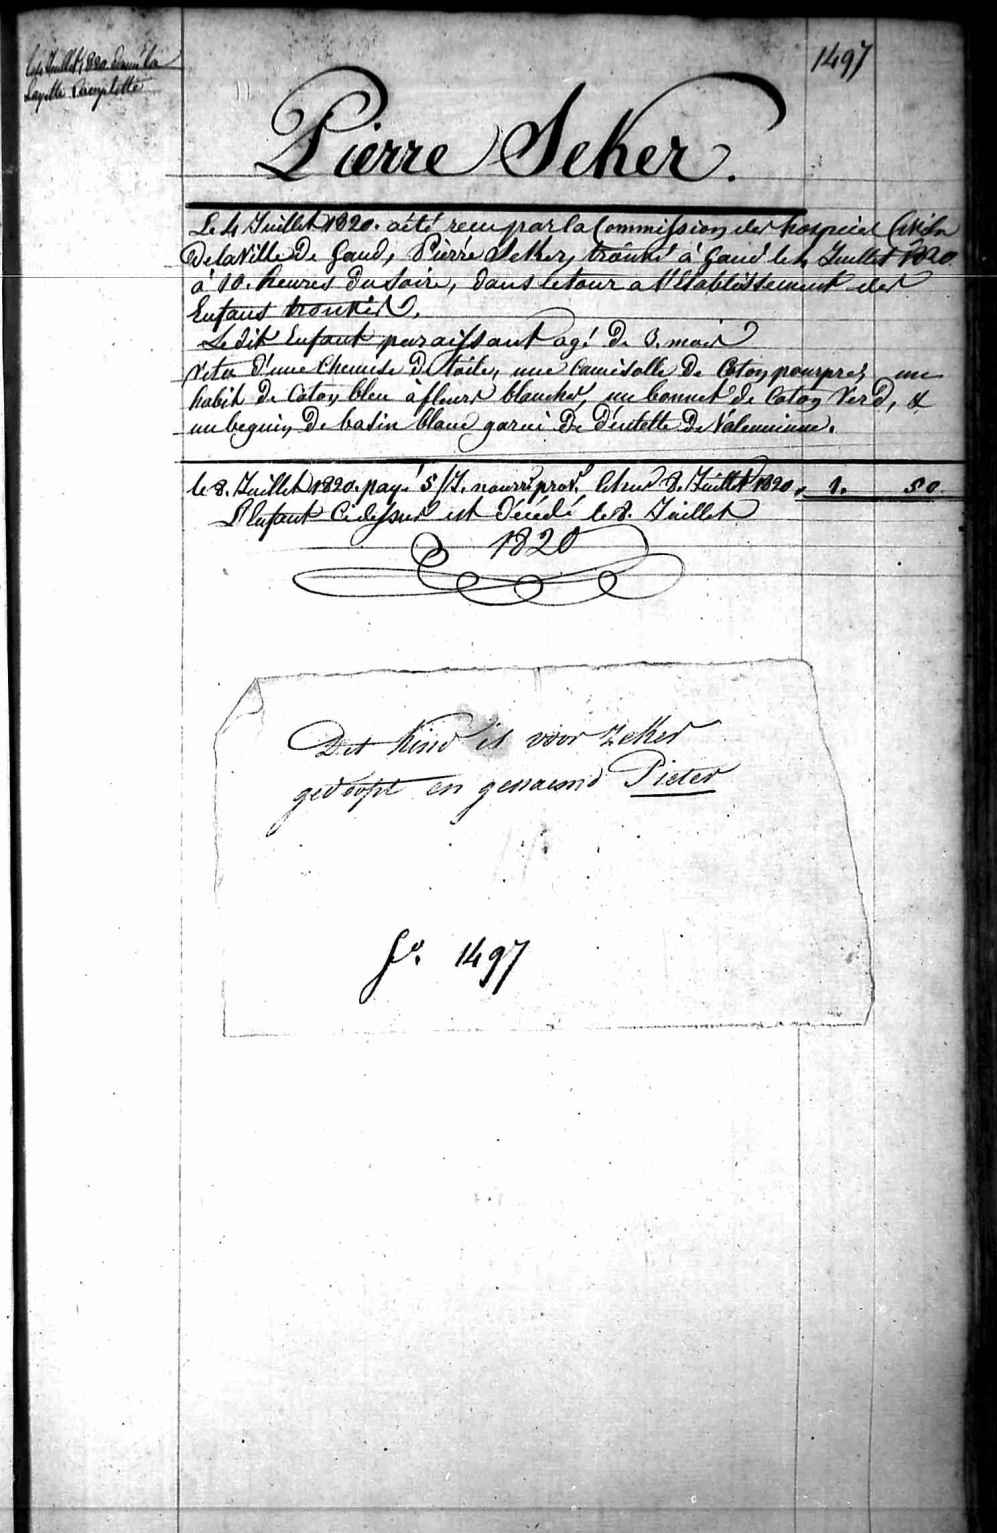 Le 4 Juillet 1820 donné la
Layette Complette
1497
Pierre Seker.
Le 4 Juillet 1820. a été recu par la Commission des hospices Civils
De la Ville De Gand, Pierre Seker, trouvé à Gand le 4 Juillet 1820.
à 10. heures Du Soire, dans le tour a l'Etablissement des
Enfans trouvés.
Le dit Enfant paraissant agé De 3. mois
Vetu d'une Chemise De toile, une Camisolle De Coton pourpre, un
habit De Coton bleu à fleurs blanches, un bonnet De Coton Verd, &
un beguin De basin blanc garni De Dentelle De Valencienne.
le 8. Juillet 1820. payé 5/J. nourre prov. échue 8. Juillet 1820. 1. 50.
L'Enfant Cidessus est Décédé le 8. Juillet
1820
Dit Kind is voor Zeker
gedoopt en genaemd Pieter
fo. 1497